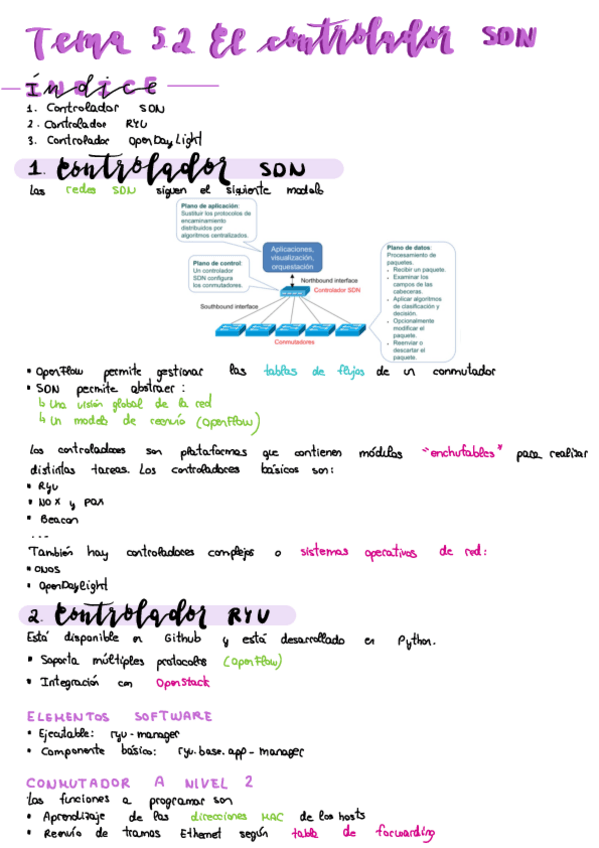 Tema 5.2 El controlador SDN
Índice
1. Controlador SDN
2. Controlador RYU
3. Controlador OpenDayLight
1. Controlador SDN
Las redes SDN siguen el siguiente modelo
Plano de aplicación:
Sustituir los protocolos de
encaminamiento
distribuidos por
algoritmos centralizados.
Aplicaciones,
visualización,
orquestación
Plano de control:
Un controlador
SDN configura
los conmutadores.
Northbound interface
Controlador SDN
Southbound interface
Conmutadores
Plano de datos:
Procesamiento de
paquetes.
• Recibir un paquete.
• Examinar los
campos de las
cabeceras.
• Aplicar algoritmos
de clasificación y
decisión.
• Opcionalmente
modificar el
paquete.
• Reenviar o
descartar el
paquete.
• OpenFlow permite gestionar las tablas de flujos de un conmutador
• SDN permite abstraer:
↳ Una visión global de la red
↳ Un modelo de reenvío (OpenFlow)
Los controladores son plataformas que contienen módulos "enchufables" para realizar
distintas tareas. Los controladores básicos son:
• Ryu
• NOX y POX
• Beacon
...
También hay controladores complejos o sistemas operativos de red:
• ONOS
• OpenDayLight
2. Controlador RYU
Está disponible en Github y está desarrollado en Python.
• Soporta múltiples protocolos (OpenFlow)
• Integración con OpenStack
ELEMENTOS SOFTWARE
• Ejecutable: ryu-manager
• Componente básico: ryu.base.app-manager
CONMUTADOR A NIVEL 2
Las funciones a programar son
• Aprendizaje de las direcciones MAC de los hosts
• Reenvío de tramas Ethernet según tabla de forwarding